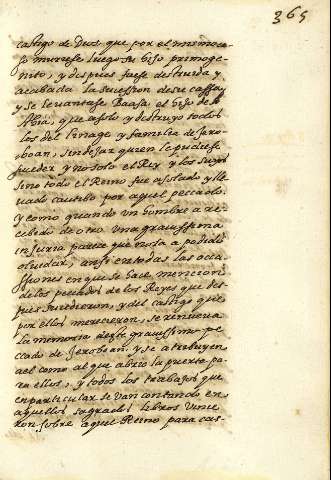 365
castigo de Dios que por el mismo ca-
so muriese luego su hijo primoge-
nito, y despues fuese destruida y
acabada la succession de su cassa,
y se levantase Baasa, el hijo de
Ahia, que asolo y destruyo todos
los del linage y familia de Jero-
boan, sin dejar quien le pudiese
suceder y no solo el Rey y los suyos
sino todo el Reino fue asolado y lle-
vado cautibo por aquel peccado.
y como quando un hombre a re-
cebido de otro una gravissima
injuria parece que no la a podido
olvidar, ansi en todas las oca-
siones en que se hace mencion
de los peccados de los Reyes que des-
pues sucedieron, y del castigo que
por ellos merecieron, se renueva
la memoria deste gravissimo pe-
ccado de Jeroboan, y se atribuyen
a el como al que abrio la puerta pa-
ra ellos, y todos los trabajos que
en particular se van contando en
aquellos sagrados libros vinie-
ron sobre aquel Reino para cas-